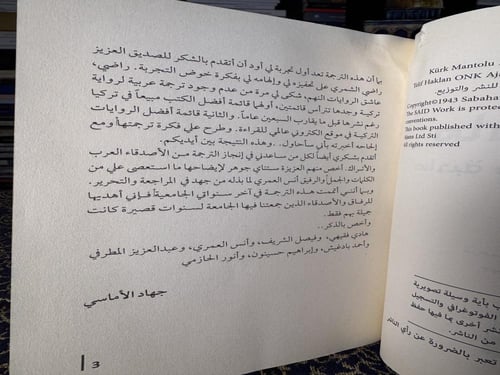 بما أن هذه الترجمة تعد أول تجربة لي أود أن أتقدم بالشكر للصديق العزيز
راضي الشمري على تحفيزه لي وإلهامه لي بفكرة خوض التجربة. راضي،
عاشق الروايات النهم، شكى لي مرة من عدم وجود ترجمة عربية لرواية
تركية وجدها تترأس قائمتين، أولهما قائمة أفضل الكتب مبيعاً في تركيا
رغم نشرها قبل ما يقارب السبعين عاماً. والثانية قائمة أفضل الروايات
التركية في موقع الكتروني عالمي للقراءة. وطرح علي فكرة ترجمتها ومع
إلحاحه أخبرته بأني سأحاول.. وهذه النتيجة بين أيديكم.
أتقدم بشكري أيضاً لكل من ساعدني في إنجاز الترجمة من الأصدقاء العرب
والأتراك. أخص منهم العزيزة سنناي جوهر لإيضاحها ما استعصى علي من
الكلمات والجمل والرفيق أنس العمري لما بذله من جهد في المراجعة والتحرير.
وبما أنني أتممت هذه الترجمة في آخر سنواتي الجامعية فإني أهديها
للرفاق والأصدقاء الذين جمعتنا فيها الجامعة لسنوات قصيرة كانت
جميلة بهم فقط.
وأخص بالذكر..
هادي فقيهي، وفيصل الشريف، وأنس العمري، وعبدالعزيز المطرفي
وأحمد بادغيش، وإبراهيم حسينون، وأنور الحازمي
جهاد الأماسي
3
Kürk Mantolu
Telif Hakları ONK Aj
للنشر والتوزيع
Copyright©1943 Sabaha
The SAID Work is prote
nventions.
This book published with
ans Ltd Sti
ll rights reserved
ب بأية وسيلة تصويرية
الفوتوغرافي والتسجيل
شر أخرى بما فيها حفظ
من الناشر.
تعبر بالضرورة عن رأي الناشر